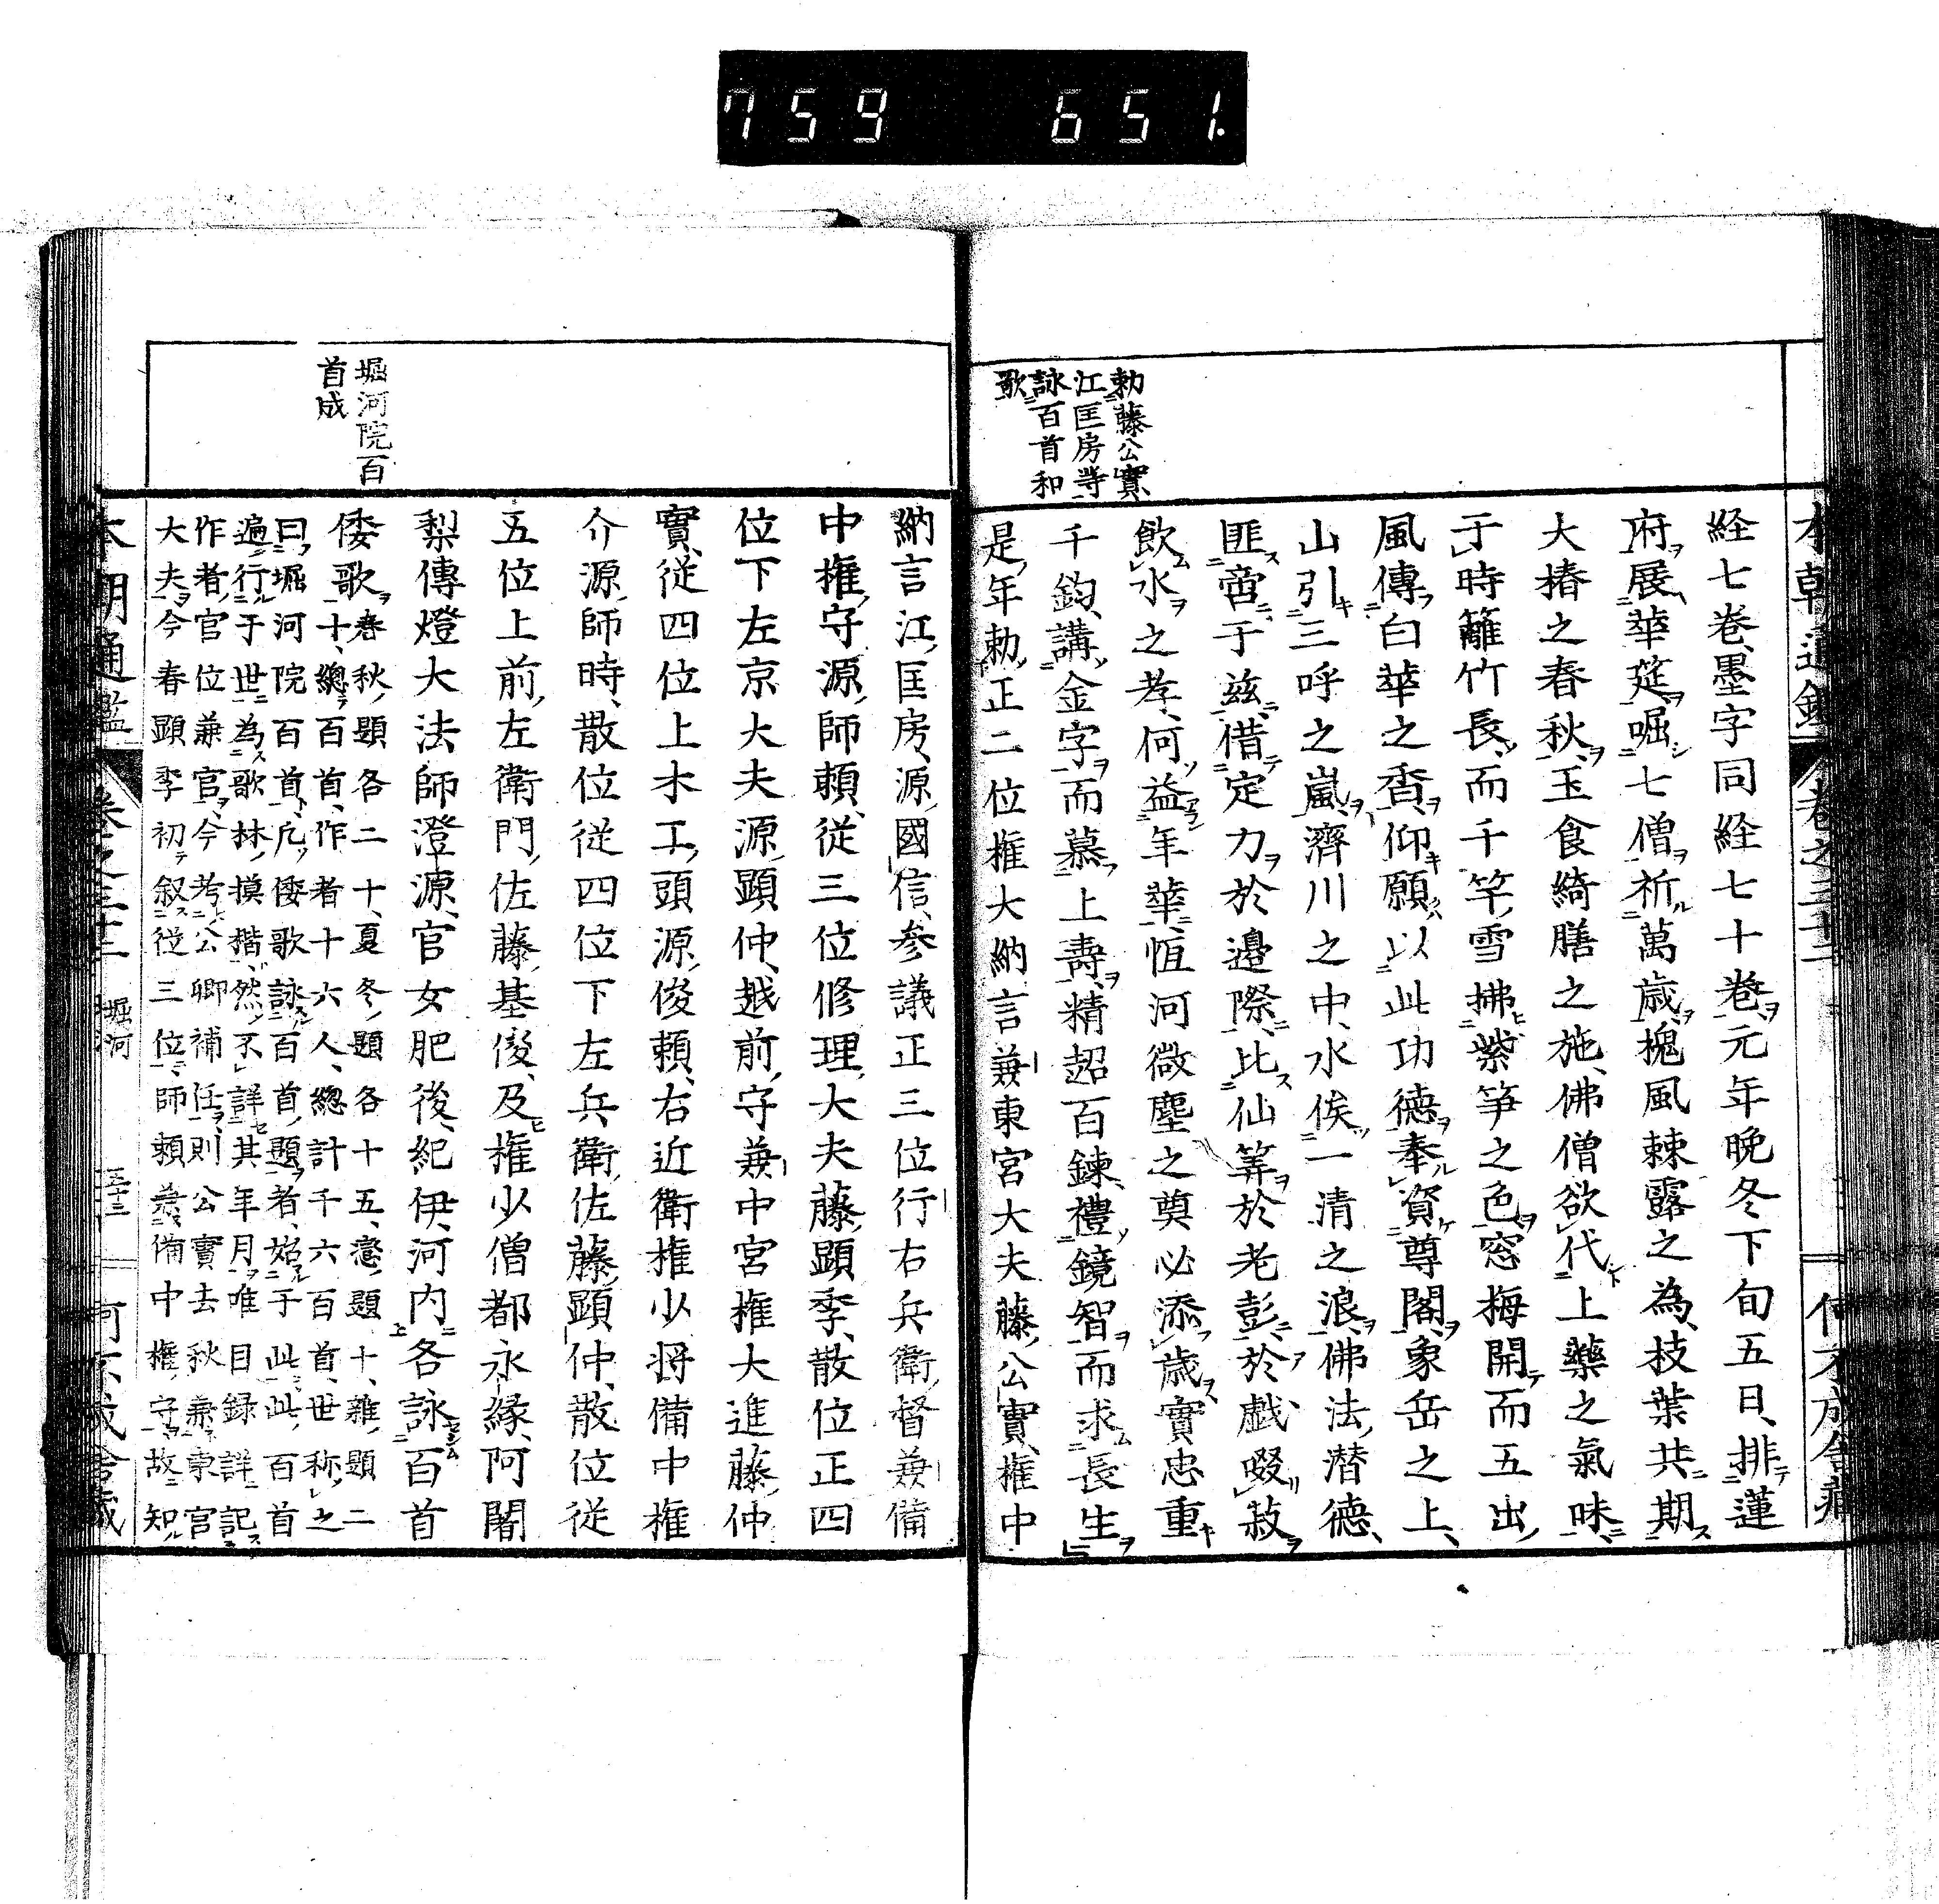 759 651.
勅藤公實、
江匡房等
詠百首和
歌
経七卷、墨字同経七十卷、元年晩冬下旬五日、排蓮
府展華筵、啒七僧祈萬歳、槐風棘露之為、技葉共期
大椿之春秋、玉食綺膳之施、佛僧欲代上藥之氣味、
于時籬竹長、而千竿、雪拂紫笋之色、窓梅開而五出、
風傳白華之香、仰願以此功德、奉資尊閣、象岳之上、
山引三呼之嵐、濟川之中、水俟一清之浪、佛法潜德、
匪啻于茲、借定力於邊際、比仙筭於老彭、於戯啜菽
飲水之孝、何益年華、恒河微塵之奠必添歳實、忠重
千鈞、講金字而慕上壽、精超百鍊、禮鏡智而求長生
是年勅正二位権大納言兼東宮大夫藤公實、権中
堀河院百
首成
納言江匡房、源國信、參議正三位行右兵衛督兼備
中権守源師頼、従三位修理大夫藤顕季、散位正四
位下左京大夫源顕仲、越前守兼中宮権大進藤仲
實、従四位上木工頭源俊頼、右近衛権少将備中権
介源師時、散位従四位下左兵衛佐藤顕仲、散位従
五位上前左衛門佐藤基俊、及権少僧都永縁、阿闍
梨傳燈大法師澄源、官女肥後、紀伊、河内各詠百首
倭歌春秋題各二十、夏冬題各十五、戀題十、雜題二
十、總百首、作者十六人、總計千六百首、世称之
曰堀河院百首、凡倭歌詠百首題者、始于此、此百首
遍行于世為歌林摸楷、然不詳其年月唯目録詳記
作者官位兼官、今考公卿補任則公實去秋兼東宮
大夫今春顕季初叙従三位、師頼兼備中権守故知
本朝通鑑 卷之三十二 堀河